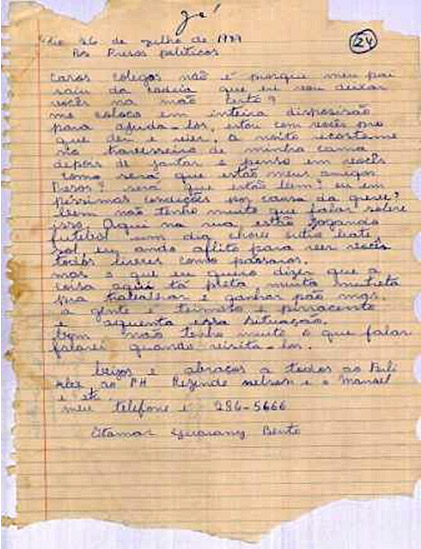 já
Rio 26 de julho de 1979
24
Aos Presos políticos
caros colegas não é porque meu pai
saiu da cadeia que eu vou deixar
vocês na mão certo?
me coloco em inteira disposição
para ajuda-los, estou com vocês pro
que der e vier, a noite recostame
no travesseiro de minha cama
depois de jantar e penso em vocês
como será que estão meus amigos
Presos? será que estão bem? ou em
péssimas condições por causa da greve?
bem não tenho muito que falar sobre
isso. Aqui na rua estão jogando
futebol um dia chove outro bate
sol eu ando aflito para ver vocês
todos livres como pássaros.
mas o que eu quero dizer que a
coisa aqui tá preta muito
pra trabalhar e ganhar pão mas
a gente é teimoso e pirracento
e aguenta essa situação.
bom não tenho muito o que falar
falarei quando visita-los.
beizos e abraços a todos ao
ao PH Rezende nelson e o Manoel
e etc.
meu telefone é 286-5666
Itamar Guarany Bento